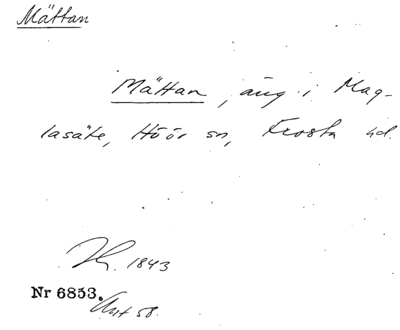 Mättan
Mättan, äng i Mag-
lasäte, Höör sn, Frosta hd.
1843
Nr 6853.
58.